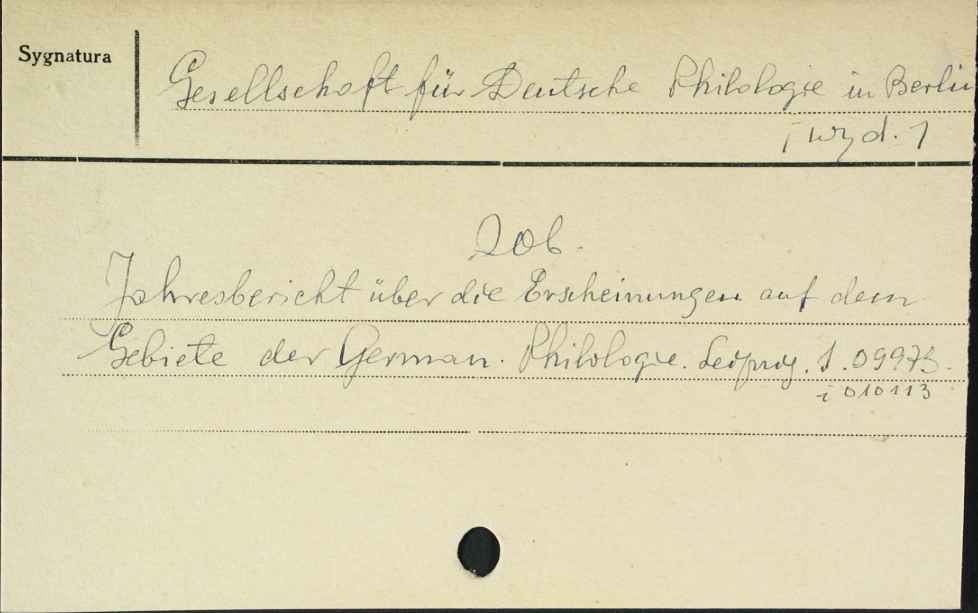 Sygnatura
Gesellschaft für Deutsche Philologie in Berlin
[wyd.]
Zob.
Jahresbericht über die Erscheinungen auf dem
Gebiete der German. Philologie. Leipzig. S. 09975.
i 010113